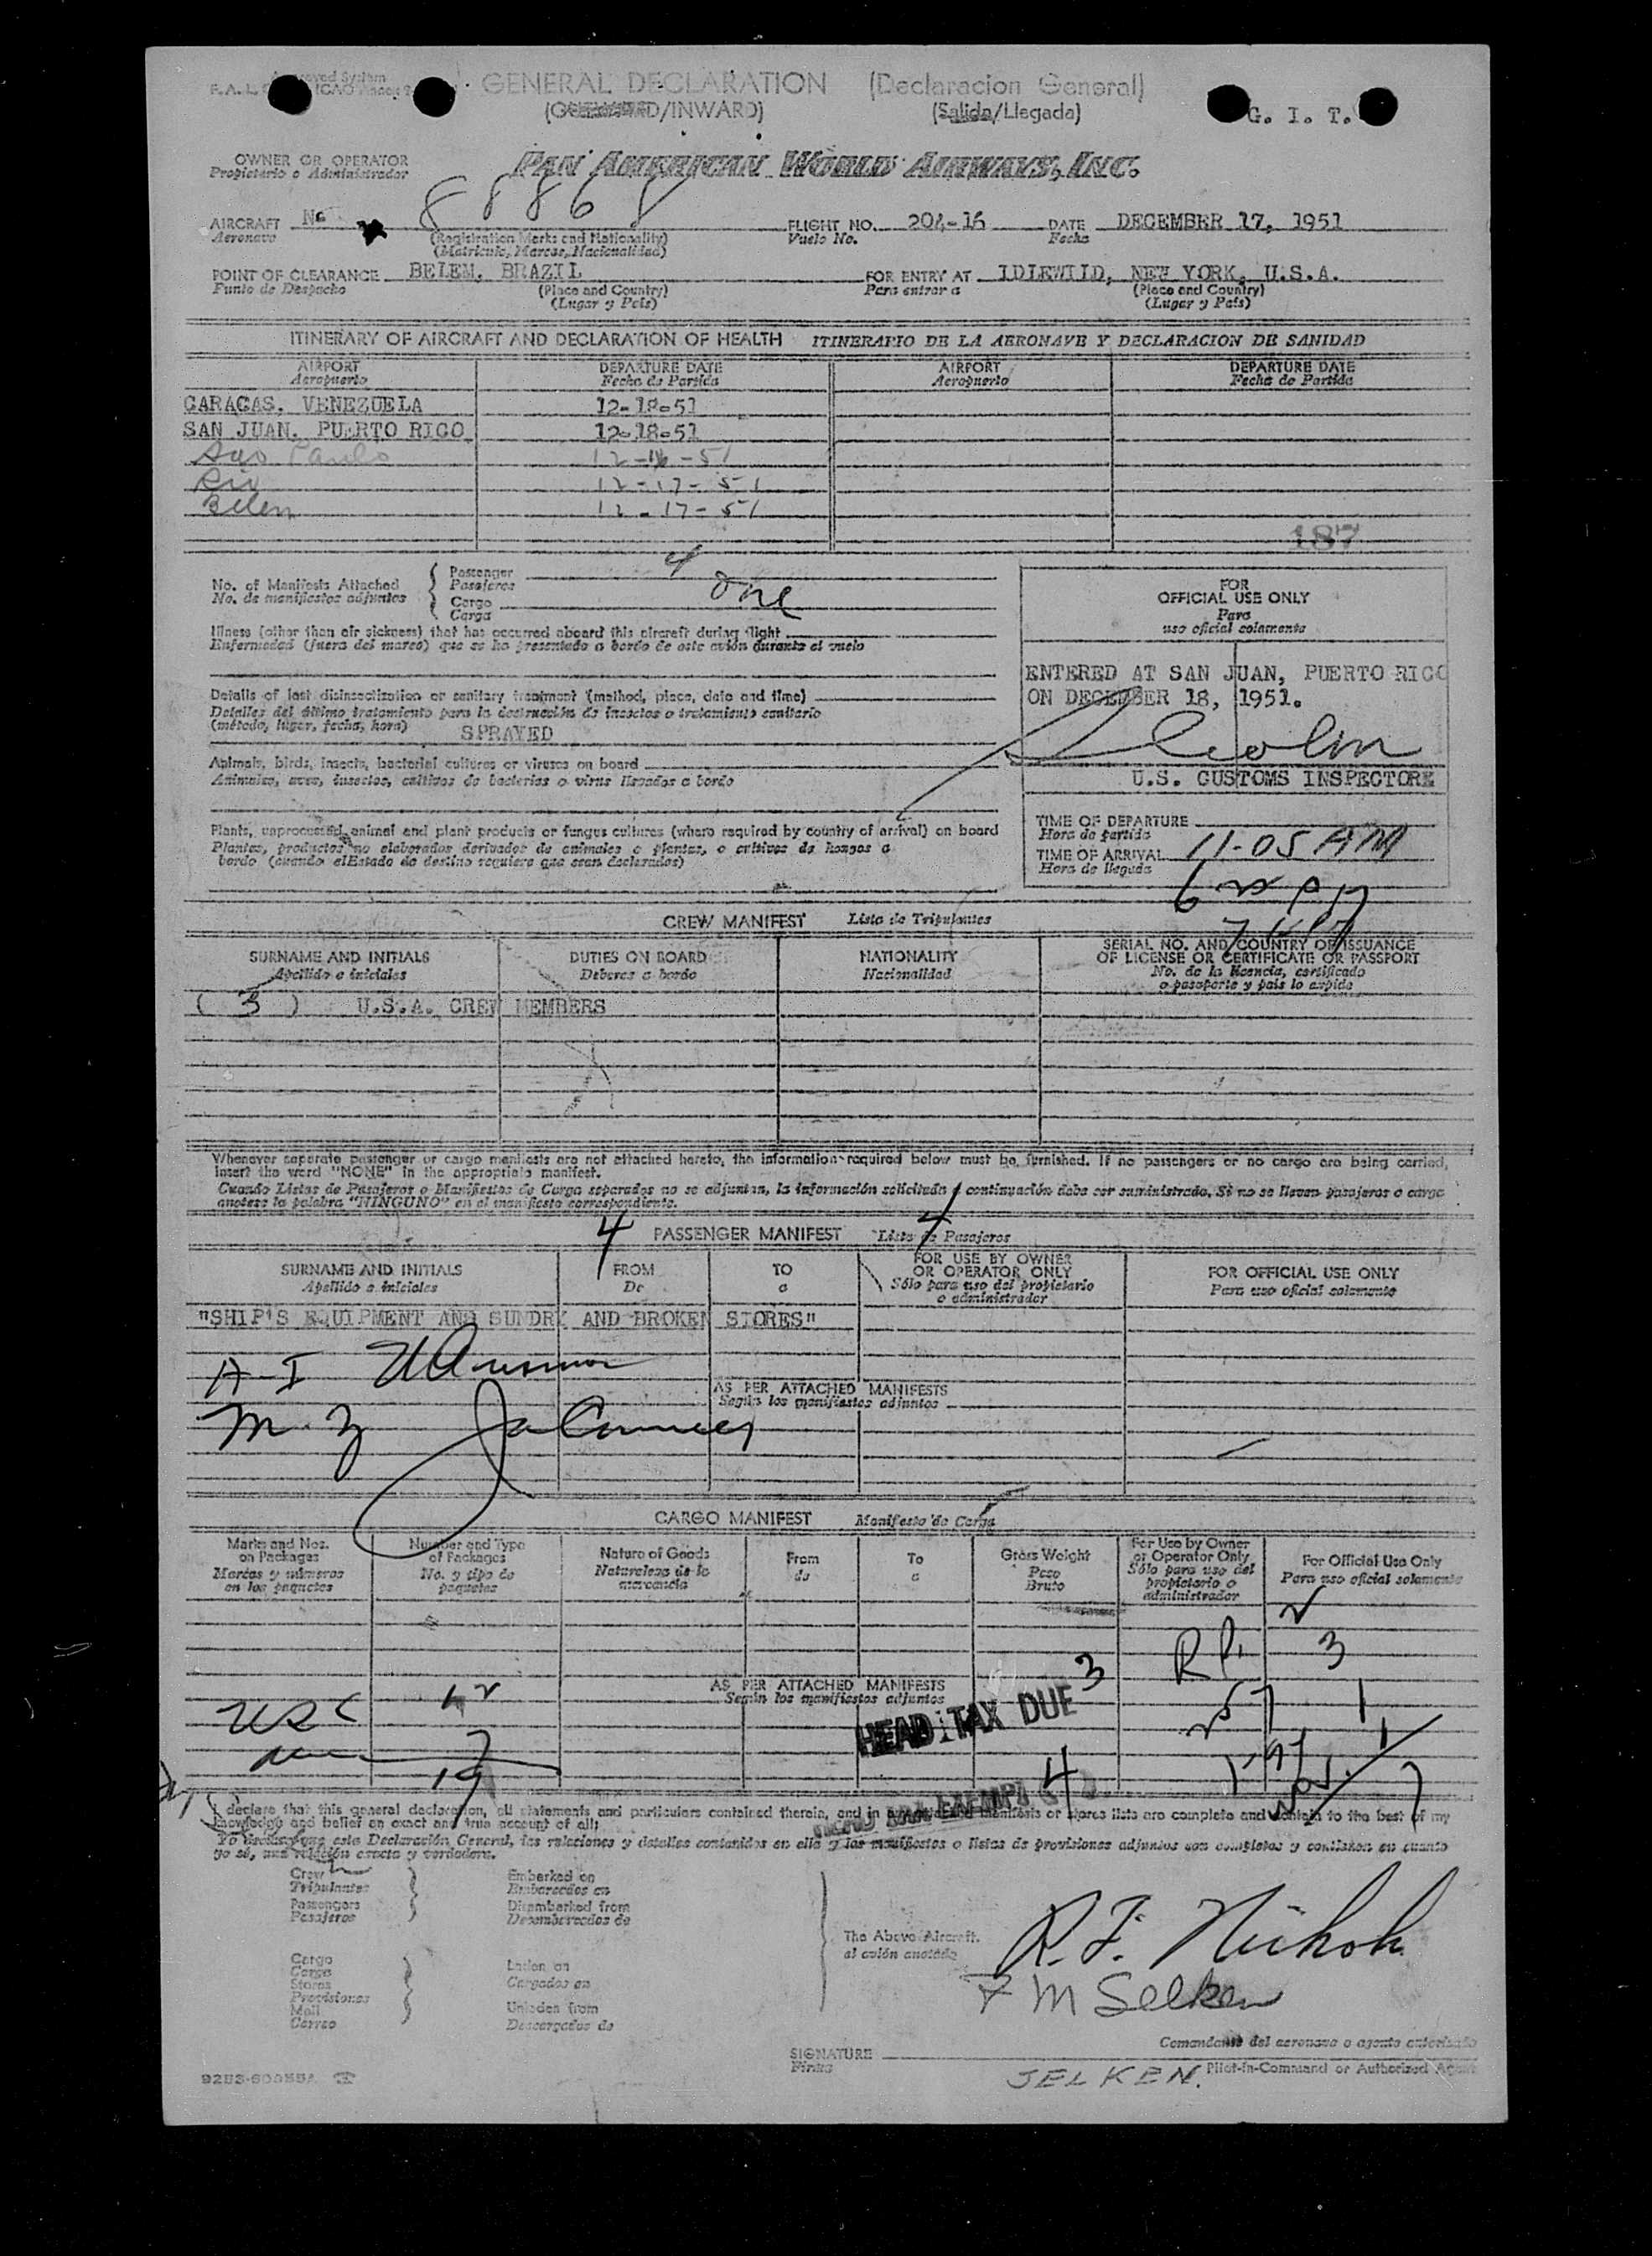 GENERAL DECLARATION (Declaracion General)
(Salida/Llegada)
G. I. T.
OWNER OR OPERATOR PAN AMERICAN WORLD AIRWAYS, INC.
Propietario o Administrador
AIRCRAFT 88868 FLIGHT NO. 204-16 DATE DECEMBER 17, 1951
Aeronave (Registration Marks and Nationality) Vuelo No. Fecha
(Matricula, Marcas, Nacionalidad)
POINT OF CLEARANCE BELEM, BRAZIL FOR ENTRY AT IDLEWILD, NEW YORK, U.S.A.
Punto de Despacho (Place and Country) Para entrar a (Place and Country)
(Lugar y País) (Lugar y País)
ITINERARY OF AIRCRAFT AND DECLARATION OF HEALTH ITINERARIO DE LA AERONAVE Y DECLARACION DE SANIDAD
AIRPORT DEPARTURE DATE AIRPORT DEPARTURE DATE
Aeropuerto Fecha de Partida Aeropuerto Fecha de Partida
CARACAS, VENEZUELA 12-18-51
SAN JUAN, PUERTO RICO 12-18-51
Sao Paulo 12-16-51
Rio 12-17-51
Belem 12-17-51
187
No. of Manifests Attached Passenger 4
No. de manifiestos adjuntos Pasajeros
Cargo one
Carga
Illness (other than air sickness) that has occurred aboard this aircraft during flight
Enfermedad (fuera del mareo) que se ha presentado a bordo de este avión durante el vuelo
Details of last disinsectization or sanitary treatment (method, place, date and time)
Detalles del último tratamiento para la destrucción de insectos o tratamiento sanitario
(método, lugar, fecha, hora) SPRAYED
Animals, birds, insects, bacterial cultures or viruses on board
Animales, aves, insectos, cultivos de bacterias o virus llevados a bordo
Plants, unprocessed animal and plant products or fungus cultures (where required by country of arrival) on board
Plantas, productos no elaborados derivados de animales o plantas, o cultivos de hongos a
bordo (cuando el Estado de destino requiere que sean declarados)
FOR
OFFICIAL USE ONLY
Para
uso oficial solamente
ENTERED AT SAN JUAN, PUERTO RICO
ON DECEMBER 18, 1951.
U.S. CUSTOMS INSPECTORS
TIME OF DEPARTURE
Hora de partida 11-05 AM
TIME OF ARRIVAL
Hora de llegada
CREW MANIFEST Lista de Tripulantes
SURNAME AND INITIALS DUTIES ON BOARD NATIONALITY SERIAL NO. AND COUNTRY OF ISSUANCE
OF LICENSE OR CERTIFICATE OR PASSPORT
Apellido e iniciales Deberes a bordo Nacionalidad No. de la licencia, certificado
o pasaporte y país lo expide
( 3 ) U.S.A. CREW MEMBERS
Whenever separate passenger or cargo manifests are not attached hereto, the information required below must be furnished. If no passengers or no cargo are being carried,
insert the word "NONE" in the appropriate manifest.
Cuando Listas de Pasajeros o Manifiestos de Carga separados no se adjuntan, la información solicitada a continuación debe ser suministrada. Si no se llevan pasajeros o carga
anotese la palabra "NINGUNO" en el manifiesto correspondiente.
4 PASSENGER MANIFEST Lista de Pasajeros 4
SURNAME AND INITIALS FROM TO FOR USE BY OWNER
OR OPERATOR ONLY FOR OFFICIAL USE ONLY
Apellido e iniciales De a Sólo para uso del propietario
o administrador Para uso oficial solamente
"SHIP'S EQUIPMENT AND SUNDRY AND BROKEN STORES"
AS PER ATTACHED MANIFESTS
Según los manifiestos adjuntos
CARGO MANIFEST Manifiesto de Carga
Marks and Nos.
on Packages
Marcas y números
en los paquetes
Number and Type
of Packages
No. y tipo de
paquetes
Nature of Goods
Naturaleza de la
mercancía
From
de
To
a
Gross Weight
Peso
Bruto
For Use by Owner
or Operator Only
Sólo para uso del
propietario o
administrador
For Official Use Only
Para uso oficial solamente
3
AS PER ATTACHED MANIFESTS 3
Según los manifiestos adjuntos
HEAD TAX DUE
19
HEAD TAX EXEMPT 4
I declare that this general declaration, all statements and particulars contained therein, and in any manifests or stores lists are complete and contain to the best of my
knowledge and belief an exact and true account of all:
Yo declaro que esta Declaración General, las relaciones y detalles contenidos en ella y los manifiestos o listas de provisiones adjuntos son completos y contienen en cuanto
yo sé, una relación exacta y verdadera.
Crew Embarked on
Tripulantes Embarcados en
Passengers Disembarked from
Pasajeros Desembarcados de
The Above Aircraft.
al avión anotado
Cargo Laden on
Carga
Stores Cargados en
Provisiones
Mail Unladen from
Correo Descargados de
R. F. Nichols
F M Selken
Comandante del aeronave o agente autorizado
SIGNATURE
Firma
SELKEN. Pilot-in-Command or Authorized Agent